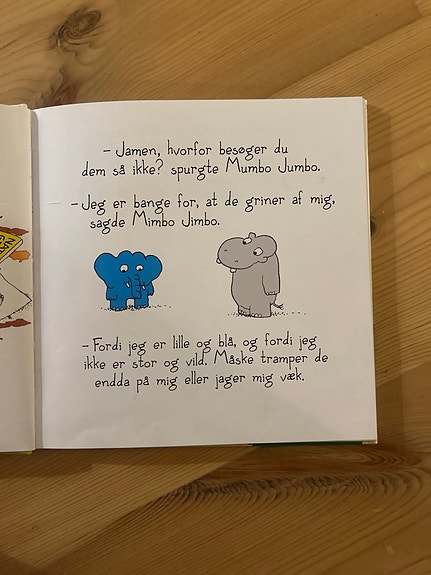 – Jamen, hvorfor besøger du
dem så ikke? spurgte Mumbo Jumbo.
– Jeg er bange for, at de griner af mig,
sagde Mimbo Jimbo.
– Fordi jeg er lille og blå, og fordi jeg
ikke er stor og vild. Måske tramper de
endda på mig eller jager mig væk.